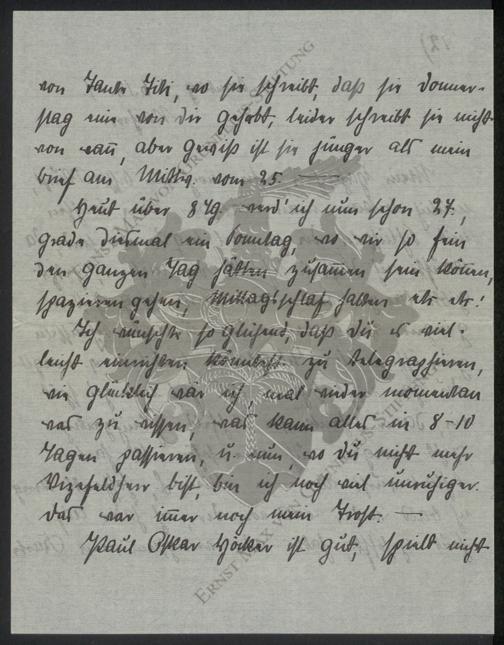 von Tante Titi, wo sie schreibt, daß sie Donner-
stag eine von dir gehabt, leider schreibt sie nicht
von wan̄, aber gewiß ist sie jünger als mein
brief am Mittw. vom 25. —
Heut über 8 Tg. werd' ich nun schon 27,
grade diesmal ein Sonntag, wo wir so fein
den ganzen Tag hätten zusam̄en sein kön̄en,
spazierengehen, Mittagsschlaf halten etc etc!
Ich wünschte so glühend, daß du es viel-
leicht einrichten kön̄test zu telegraphieren,
wie glücklich wär ich, mal wieder momentan
was zu wissen, was kann alles in 8-10
Tagen passieren, u. nun, wo du nicht mehr
Vizefeldherr bist, bin ich noch viel unruhiger.
das war im̄er noch mein Trost. —
Paul Oskar Höcker ist gut, spielt nicht
12)
ERNST MAX VON GRUNELIUS-STIFTUNG